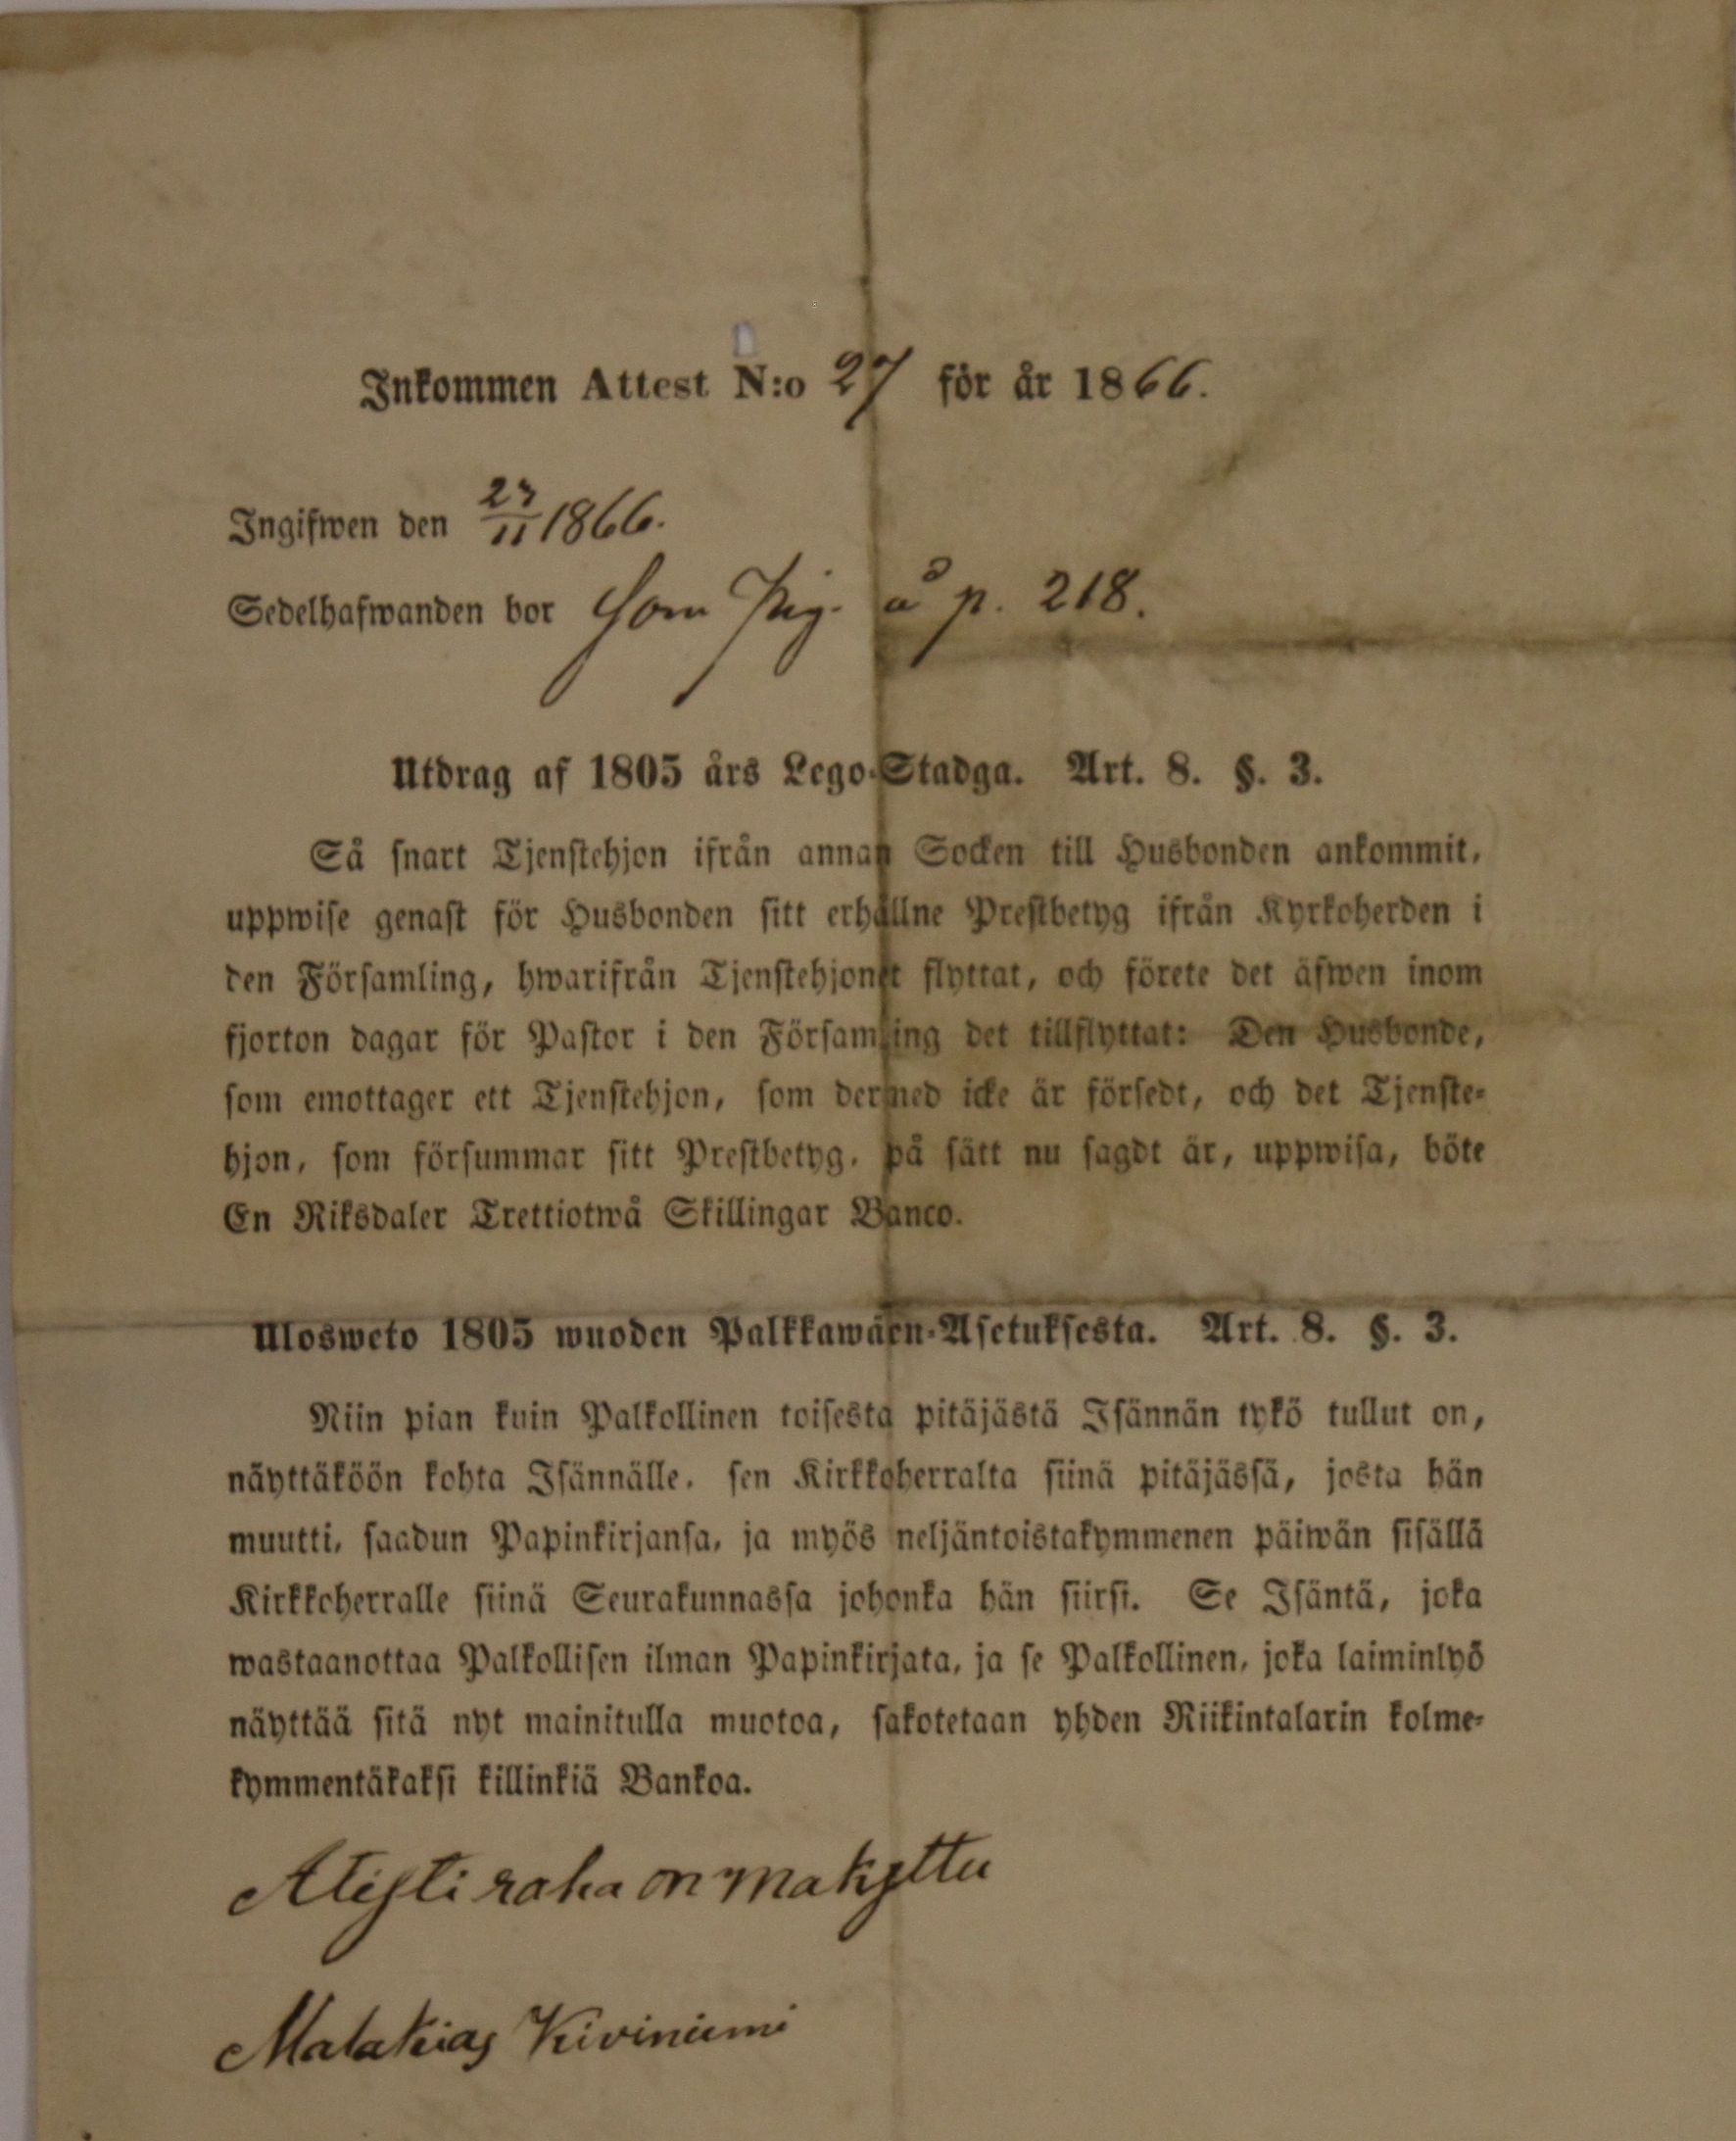 Inkommen Attest N:o 27 för år 1866.
Ingifwen den 23/11 1866.
Sedelhafwanden bor som Pig. å p. 218.
Utdrag af 1805 års Lego-Stadga. Art. 8. §. 3.
Så snart Tjenstehjon ifrån annan Socken till Husbonden ankommit,
uppwise genast för Husbonden sitt erhållne Prestbetyg ifrån Kyrkoherden i
den Församling, hwarifrån Tjenstehjonet flyttat, och förete det äfwen inom
fjorton dagar för Pastor i den Församling det tillflyttat: Den Husbonde,
som emottager ett Tjenstehjon, som dermed icke är försedt, och det Tjenste-
hjon, som försummar sitt Prestbetyg, på sätt nu sagdt är, uppwisa, böte
En Riksdaler Trettiotwå Skillingar Banco.
Ulosweto 1805 wuoden Palkkawäen-Asetuksesta. Art. 8. §. 3.
Niin pian kuin Palkollinen toisesta pitäjästä Isännän tykö tullut on,
näyttäköön kohta Isännälle, sen Kirkkoherralta siinä pitäjässä, josta hän
muutti, saadun Papinkirjansa, ja myös neljäntoistakymmenen päiwän sisällä
Kirkkoherralle siinä Seurakunnassa johonka hän siirsi. Se Isäntä, joka
wastaanottaa Palkollisen ilman Papinkirjata, ja se Palkollinen, joka laiminlyö
näyttää sitä nyt mainitulla muotoa, sakotetaan yhden Riikintalarin kolme-
kymmentäkaksi killinkiä Bankoa.
Atesti raha on maksettu
Malakias Kiviniemi